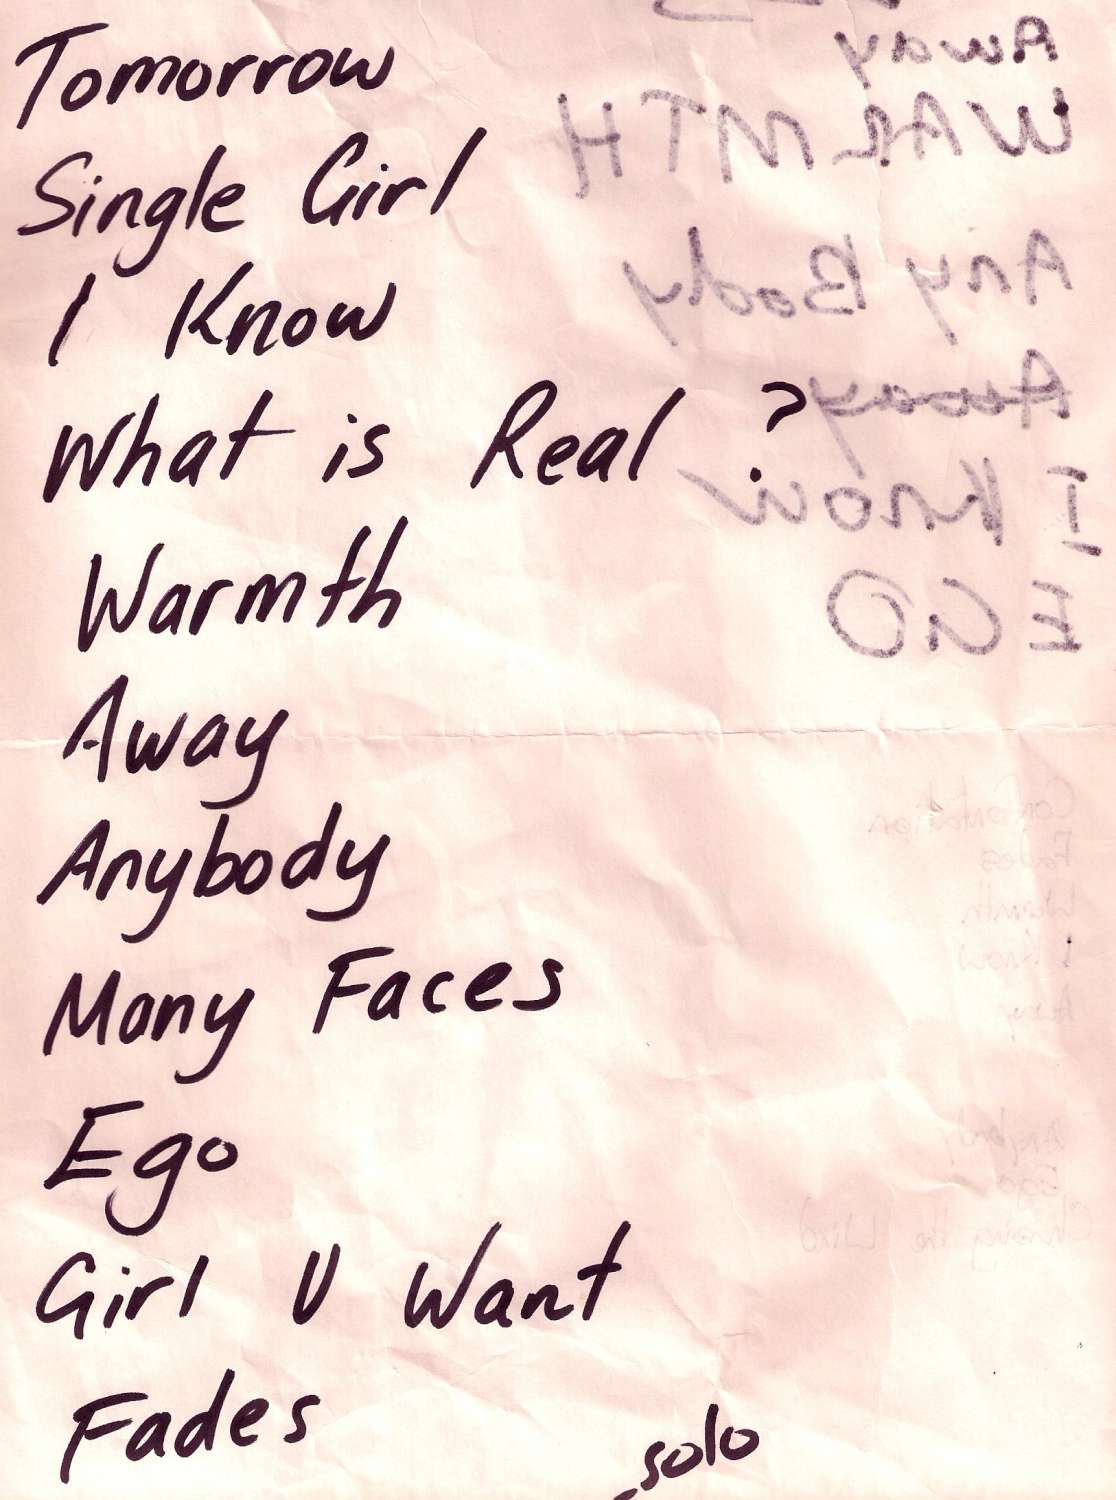 Tomorrow
Single Girl
I Know
What is Real ?
Warmth
Away
Anybody
Many Faces
Ego
Girl U Want
Fades
solo
Away
WARMTH
Any Body
Away
I Know
EGO
Confontation
Fades
Warmth
I Know
Away
Anybody
Ego
Chasing the Wind